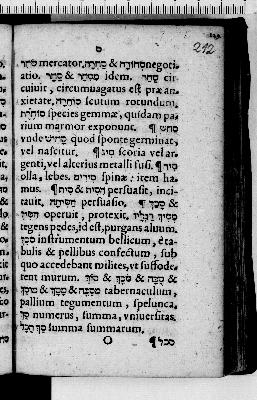 ס
212
סוחר mercator. סחרה & סחורה negoti-
atio. סחר & מסחר idem. סחר cir-
cuiuit, circumuagatus est præ an-
xietate. סוחרה scutum rotundum.
סוחרת species gemmæ, quidam pa-
rium marmor exponunt. ¶ סחש
vnde סחיש quod sponte germinat,
vel nascitur. ¶ סיג scoria vel ar-
genti, vel alterius metalli fusi. ¶ סיר
olla, lebes. סירים spinæ: item ha-
mus. ¶ סית & הסית persuasit, inci-
tauit. הסיתה persuasio. ¶ סכך &
operuit, protexit.
tegens pedes, id est, purgans aluum.
סכך instrumentum bellicum, è ta-
bulis & pellibus confectum, sub
quo accedebant milites, vt suffode-
rent murum. סכך & סכה &
& מסך & מסכה tabernaculum,
pallium tegumentum, spelunca.
סך numerus, summa, vniuersitas.
סך הכל summa summarum.
¶ סכל